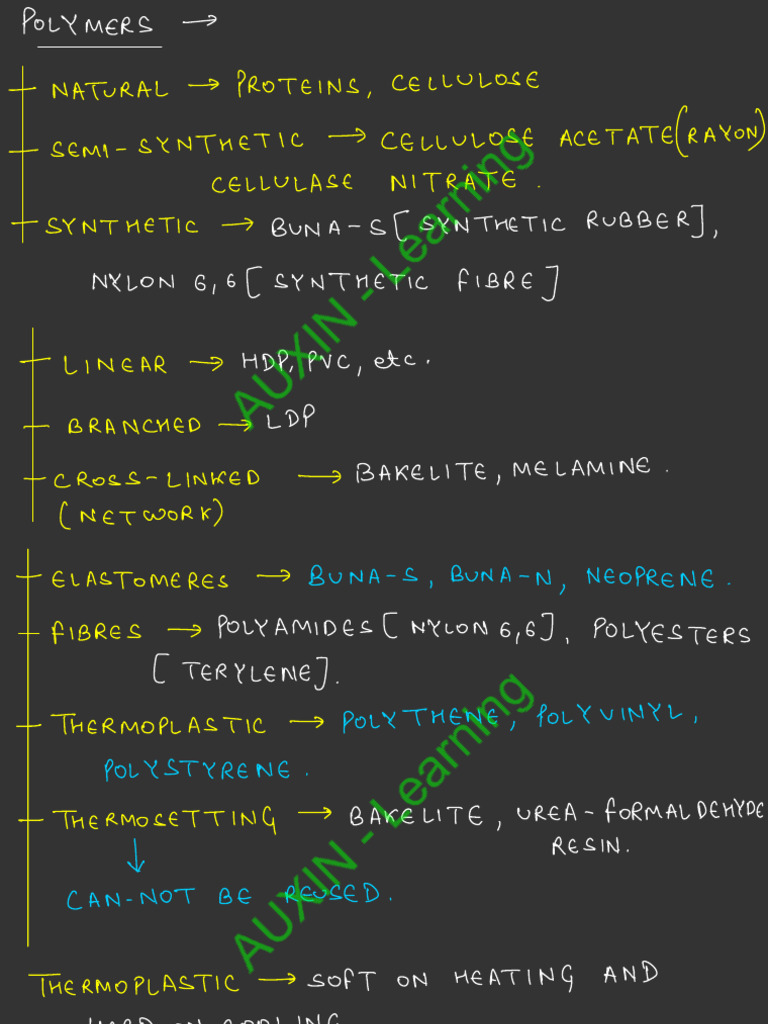 POLYMERS →
NATURAL → PROTEINS, CELLULOSE
SEMI-SYNTHETIC → CELLULOSE ACETATE(RAYON)
CELLULASE NITRATE.
SYNTHETIC → BUNA-S [SYNTHETIC RUBBER],
NYLON 6,6 [SYNTHETIC FIBRE]
LINEAR → HDP, PVC, etc.
BRANCHED → LDP
CROSS-LINKED → BAKELITE, MELAMINE.
(NETWORK)
ELASTOMERES → BUNA-S, BUNA-N, NEOPRENE.
FIBRES → POLYAMIDES [NYLON 6,6], POLYESTERS
[TERYLENE].
THERMOPLASTIC → POLYTHENE, POLYVINYL,
POLYSTYRENE.
THERMOSETTING → BAKELITE, UREA-FORMALDEHYDE
RESIN.
↓
CAN-NOT BE REUSED.
THERMOPLASTIC → SOFT ON HEATING AND
HARD ON COOLING
AUXIN - Learning
AUXIN - Learning